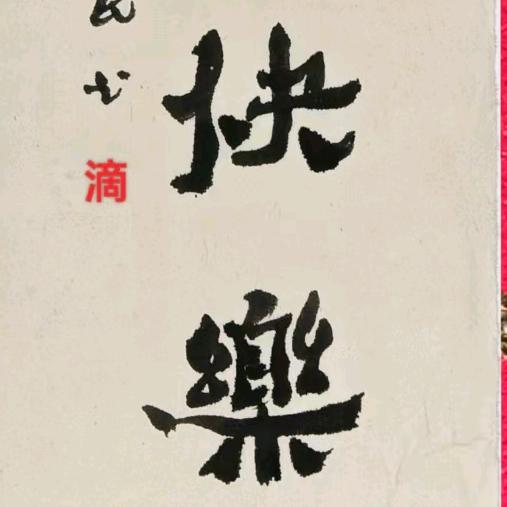 快
樂
书
滴